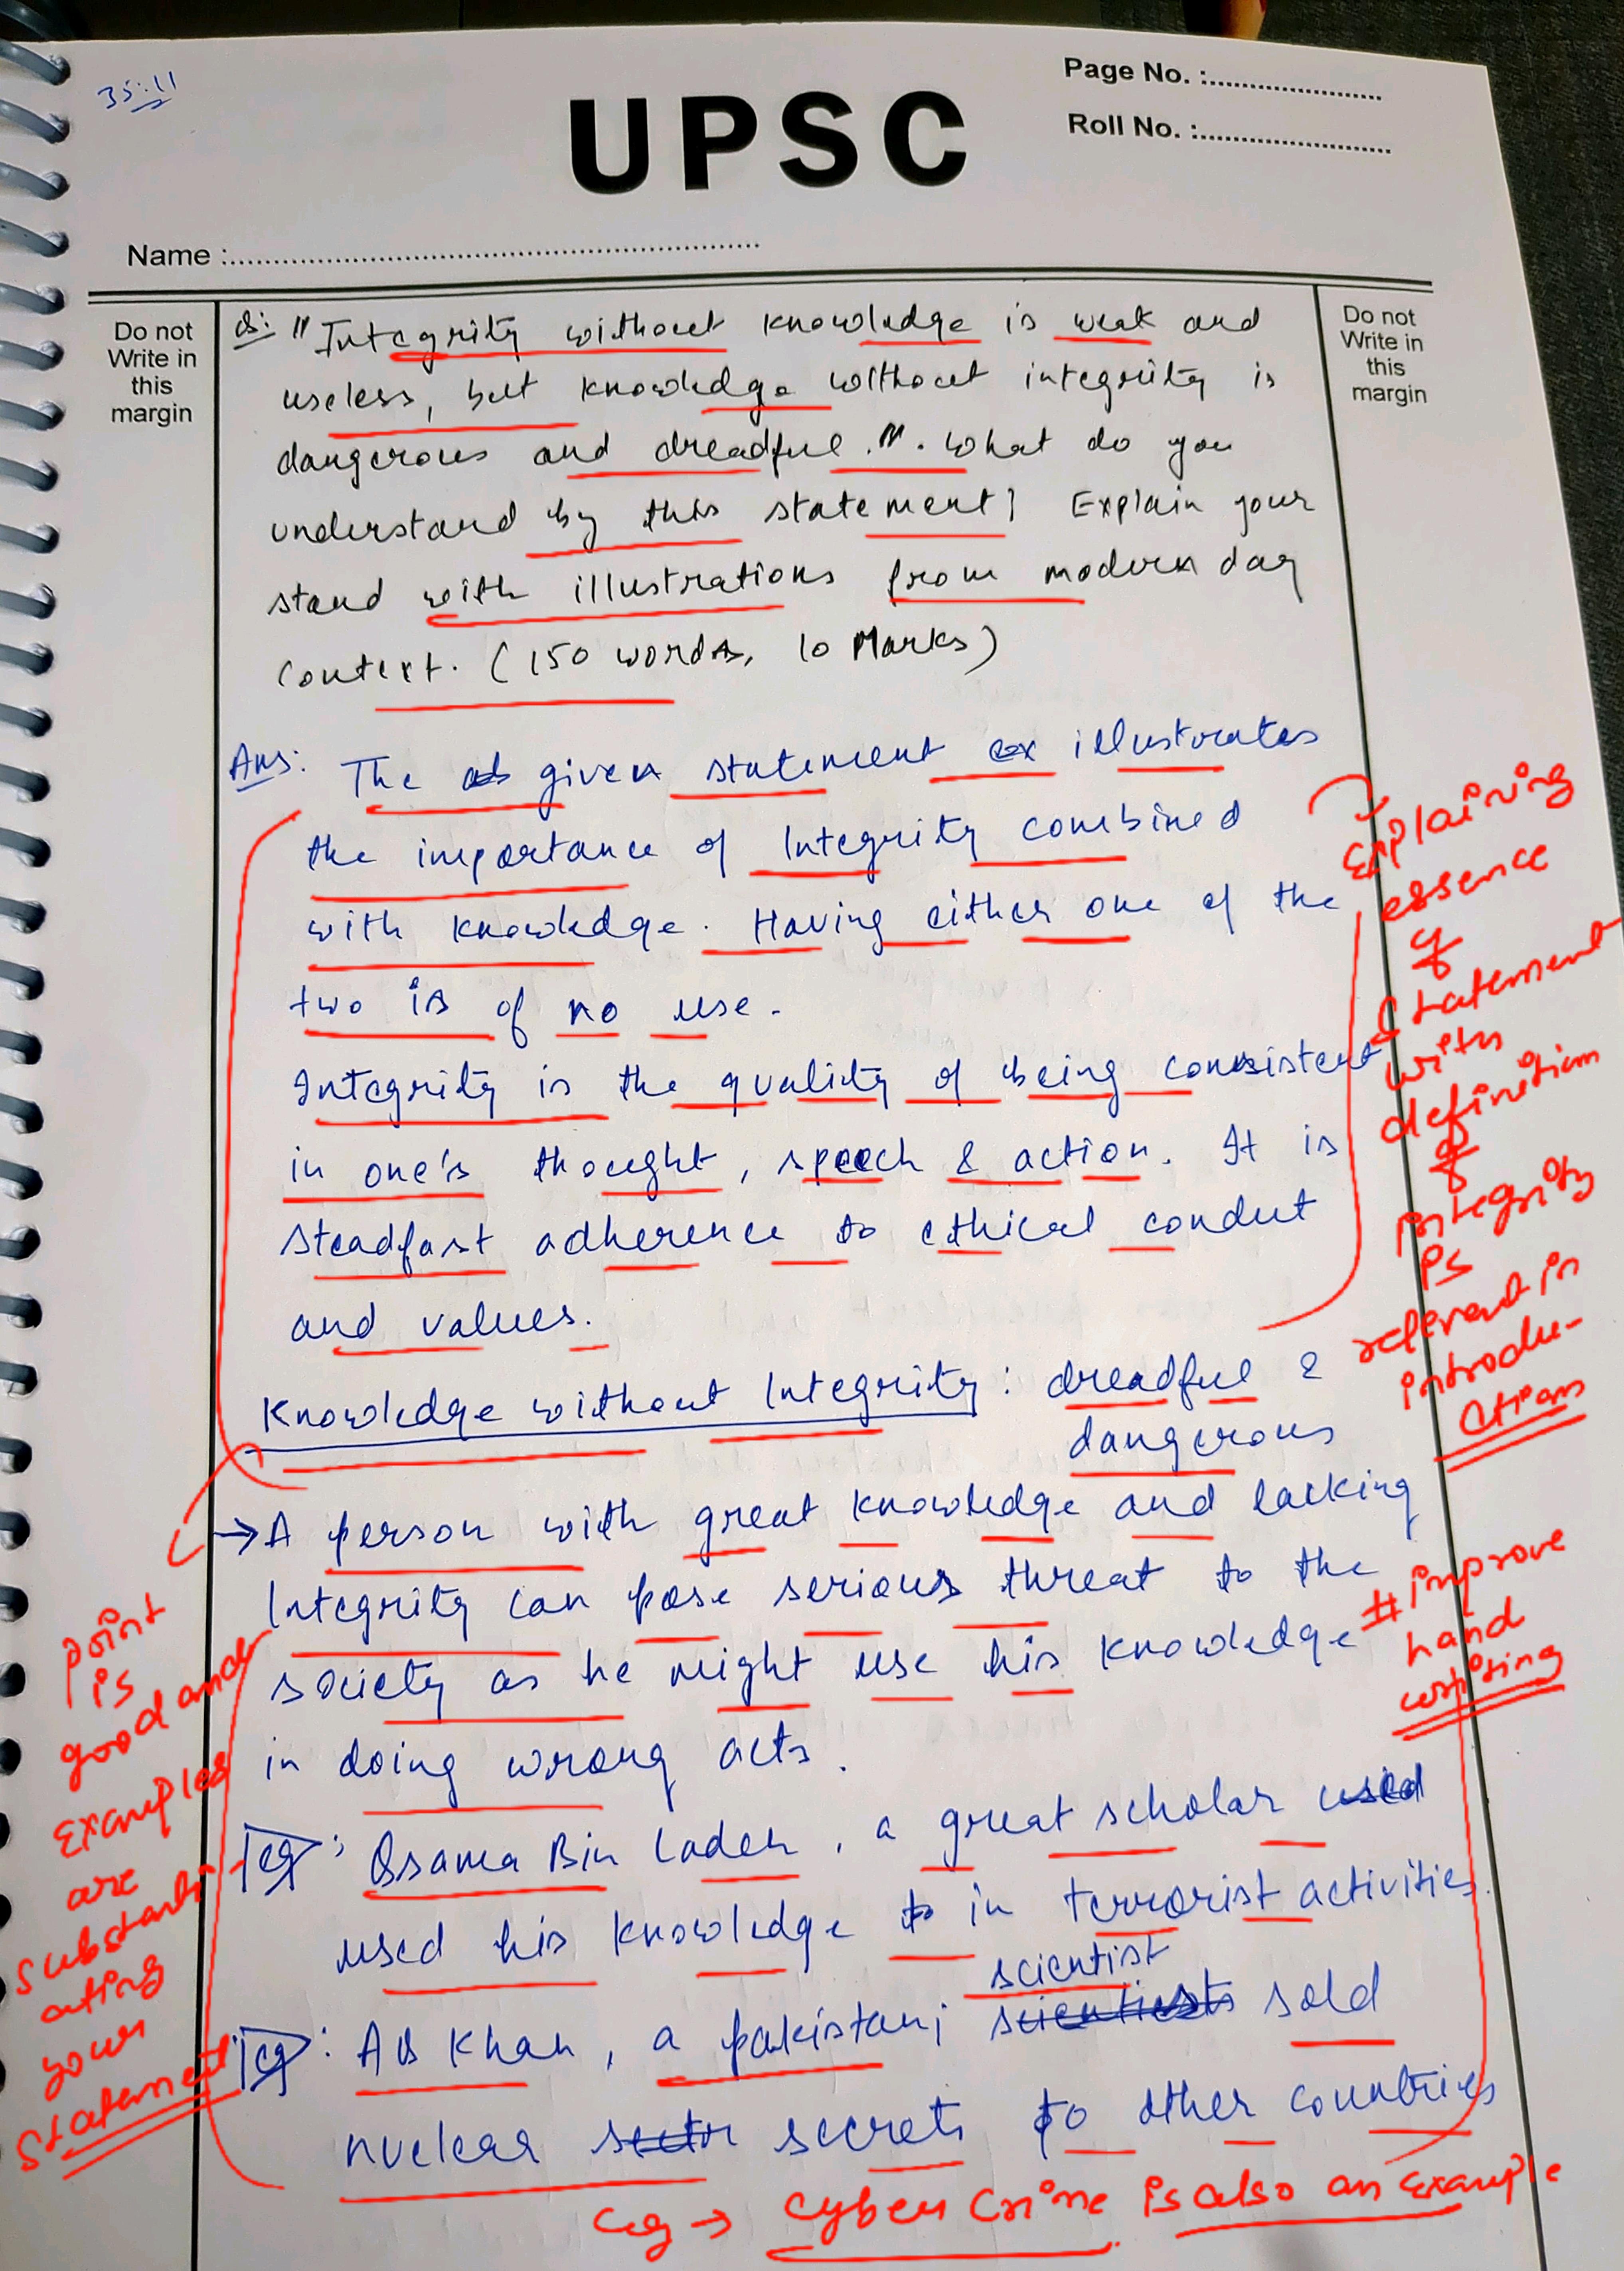 35:11
UPSC
Page No. :
Roll No. :
Name :
Do not
Write in
this
margin
Do not
Write in
this
margin
Q: "Integrity without knowledge is weak and
useless, but knowledge without integrity is
dangerous and dreadful.". What do you
understand by this statement? Explain your
stand with illustrations from modern day
context. (150 words, 10 Marks)
Ans: The given statement illustrates
the importance of Integrity combined
with knowledge. Having either one of the
two is of no use.
Integrity is the quality of being consistent
in one's thought, speech & action. It is
steadfast adherence to ethical conduct
and values.
Explaining
essence
of
statement
with
definition
of
integrity
is
relevant in
introdu-
ction
Knowledge without Integrity: dreadful &
dangerous
→ A person with great knowledge and lacking
Integrity can pose serious threat to the
society as he might use his knowledge
in doing wrong acts.
# improve
hand
writing
point
is
good and
examples
are
substanti-
ating
your
statement
eg: Osama Bin Laden, a great scholar used
used his knowledge to in terrorist activities.
scientist
eg: AQ Khan, a pakistani scientists sold
nuclear secrets to other countries
eg → Cyber Crime is also an example